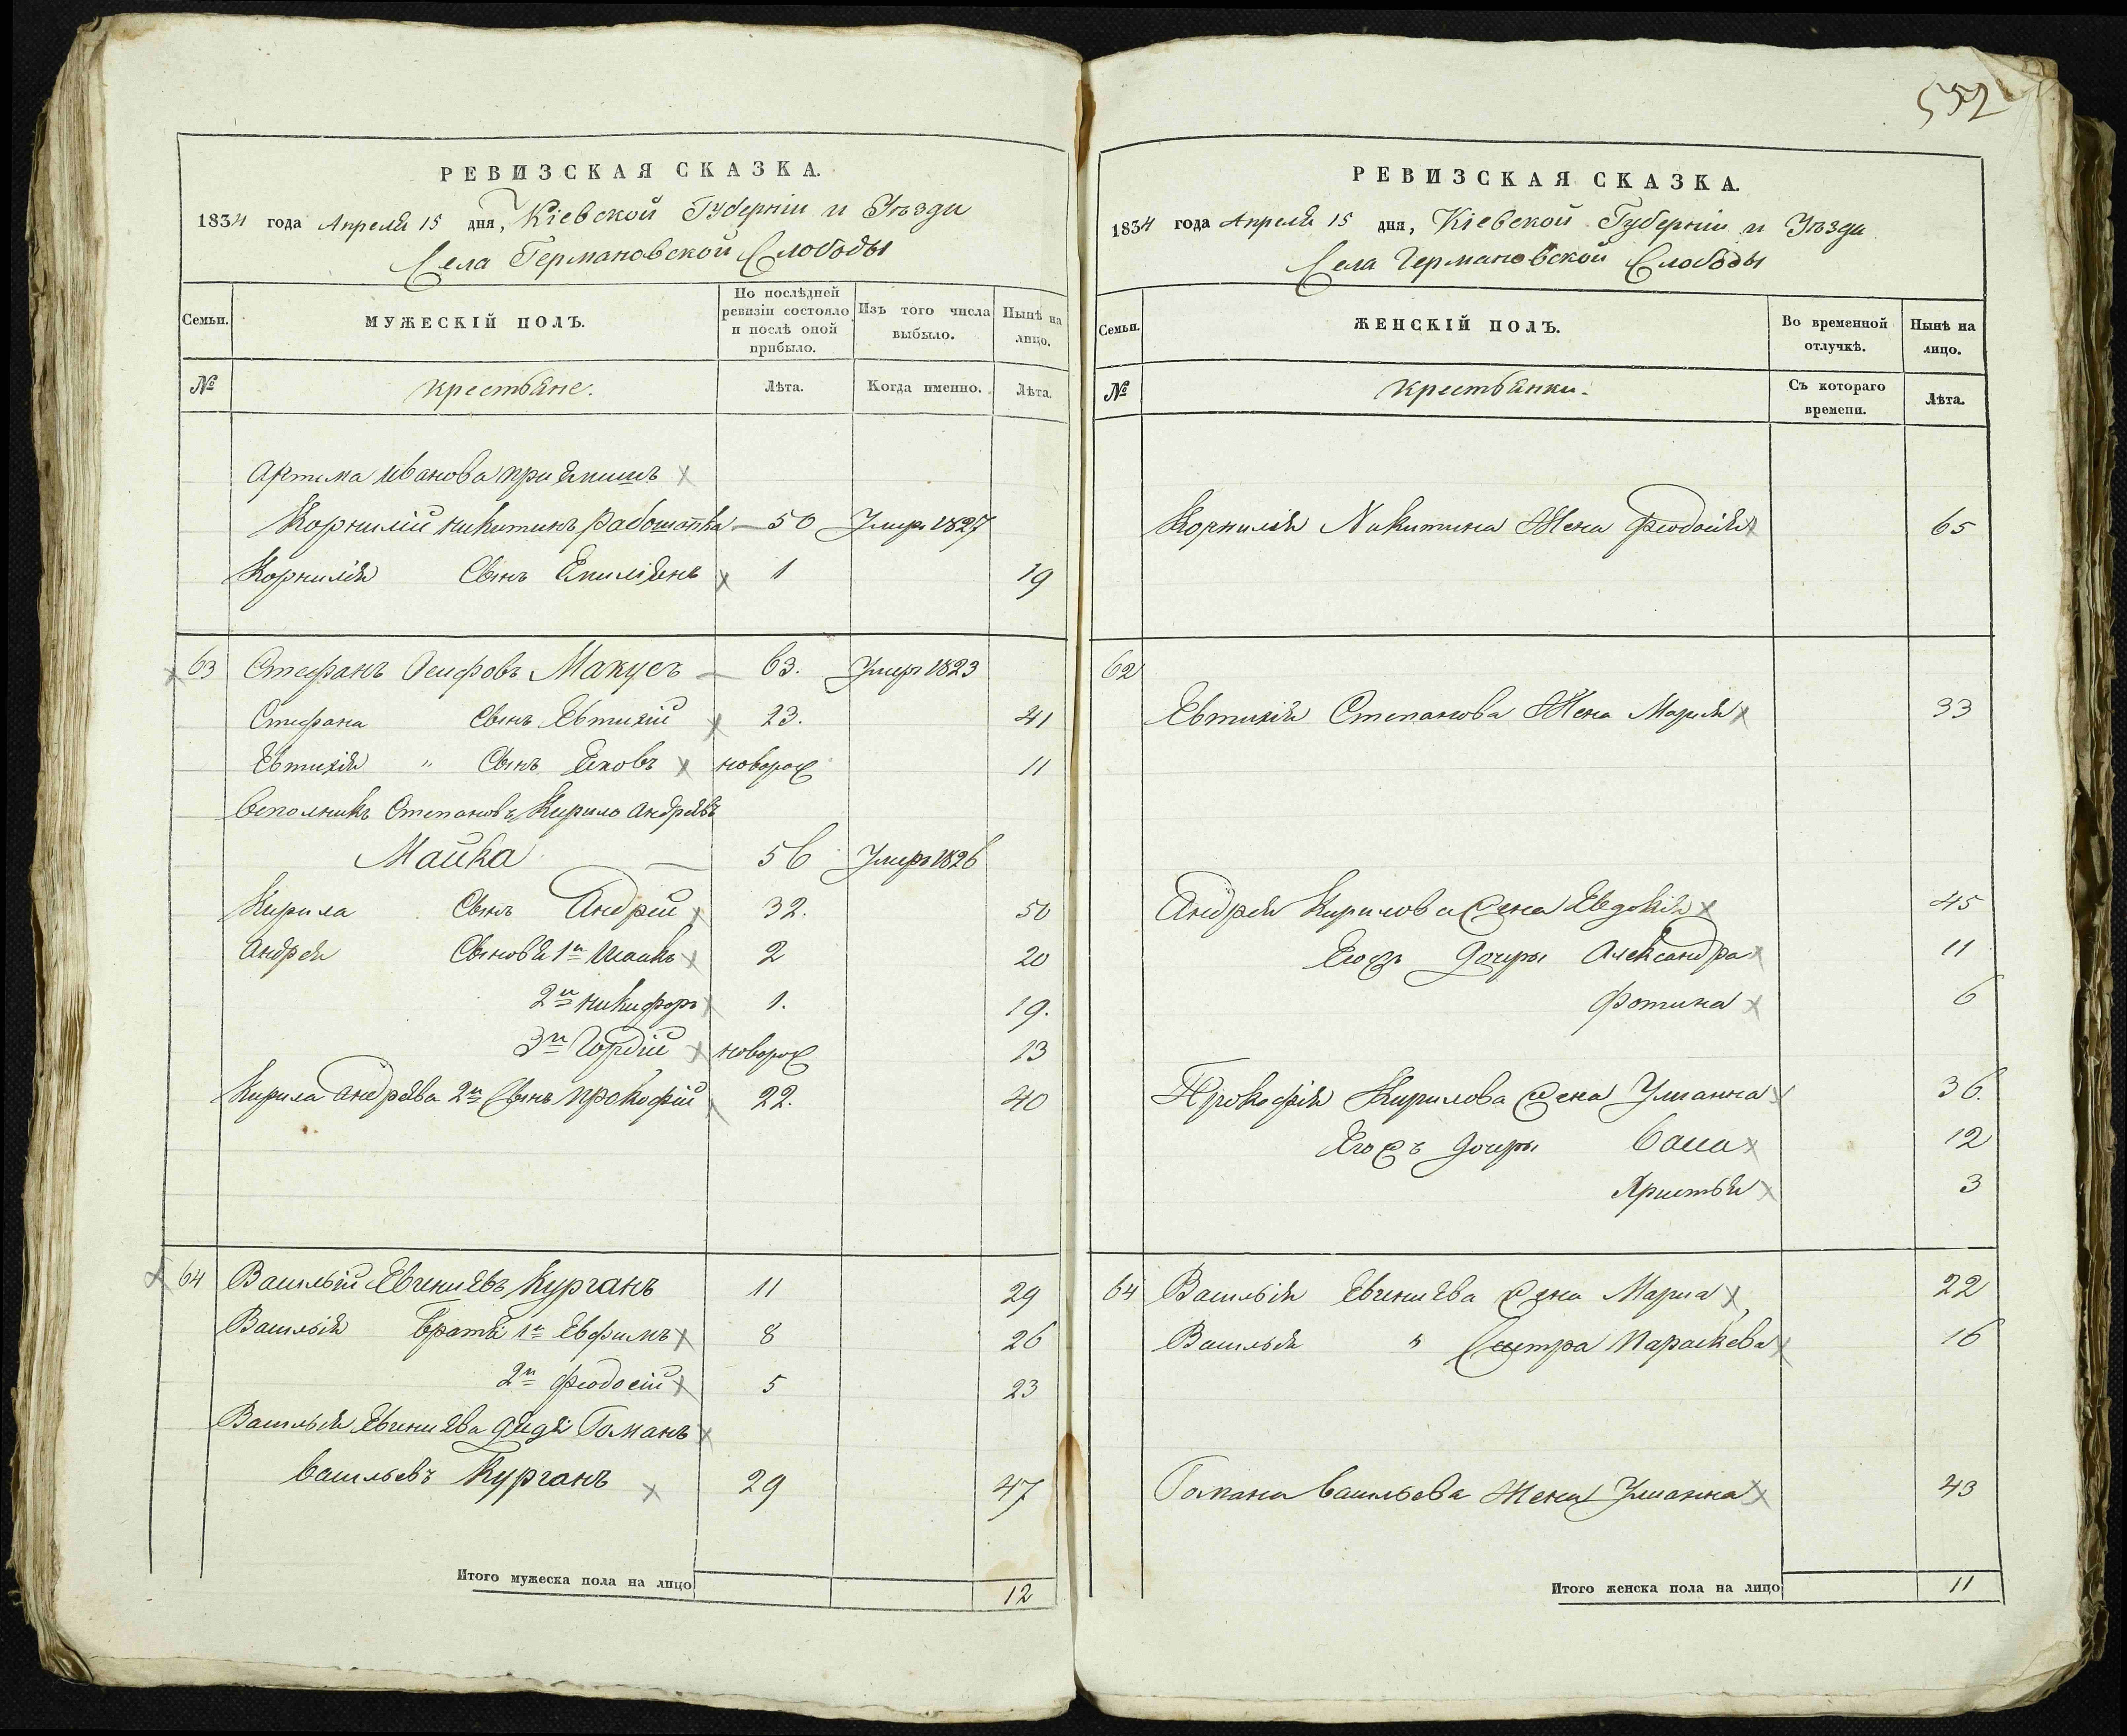 РЕВИЗСКАЯ СКАЗКА.
1834 года Апреля 15 дня, Кіевской Губерніи и Уѣзда
Села Германовской Слободы
Семьи. МУЖЕСКІЙ ПОЛЪ. По послѣдней ревизіи состояло и послѣ оной прибыло. Изъ того числа выбыло. Нынѣ на лицо.
№ крестьяне. Лѣта. Когда именно. Лѣта.
Артема Иванова
Корнилій Никитинъ 50 Умеръ 1827
Корнилія Сынъ Емиліянъ 1 19
63 Стефанъ Осифовъ Макусъ 63. Умеръ 1823
Стефана Сынъ Евтихій 23. 41
Евтихія " Сынъ Яковъ новорож 11
Степановъ Кирило Андреевъ
Майка 56 Умеръ 1826
Кирила Сынъ Андрей 32. 50
Андрея Сыновья 1й Исакъ 2 20
2й Никифоръ 1. 19.
3й Гордій новорож 13
Кирила Андреева 2й Сынъ Прокофій 22. 40
64 Василій Евгеніевъ Курганъ 11 29
Василія Братья 1й Евфимъ 8 26
2й Феодосій 5 23
Василія Евгеніева дядя Романъ
Васильевъ Курганъ 29 47
Итого мужеска пола на лицо 12
552
РЕВИЗСКАЯ СКАЗКА.
1834 года Апреля 15 дня, Кіевской Губерніи и Уѣзда
Села Германовской Слободы
Семьи. ЖЕНСКІЙ ПОЛЪ. Во временной отлучкѣ. Нынѣ на лицо.
№ крестьянки. Съ котораго времени. Лѣта.
Корнилія Никитина Жена Феодосія 65
62
Евтихія Степанова Жена Марія 33
Андрея Кирилова жена Евдокія 45
Егожъ дочери Александра 11
Фотина 6
Прокофія Кирилова жена Улианна 36.
Егожъ дочери Васа 12
Христья 3
64 Василія Евгеніева жена Мариа 22
Василія " Сестра Параскева 16
Романа Васильева Жена Улианна 43
Итого женска пола на лицо 11